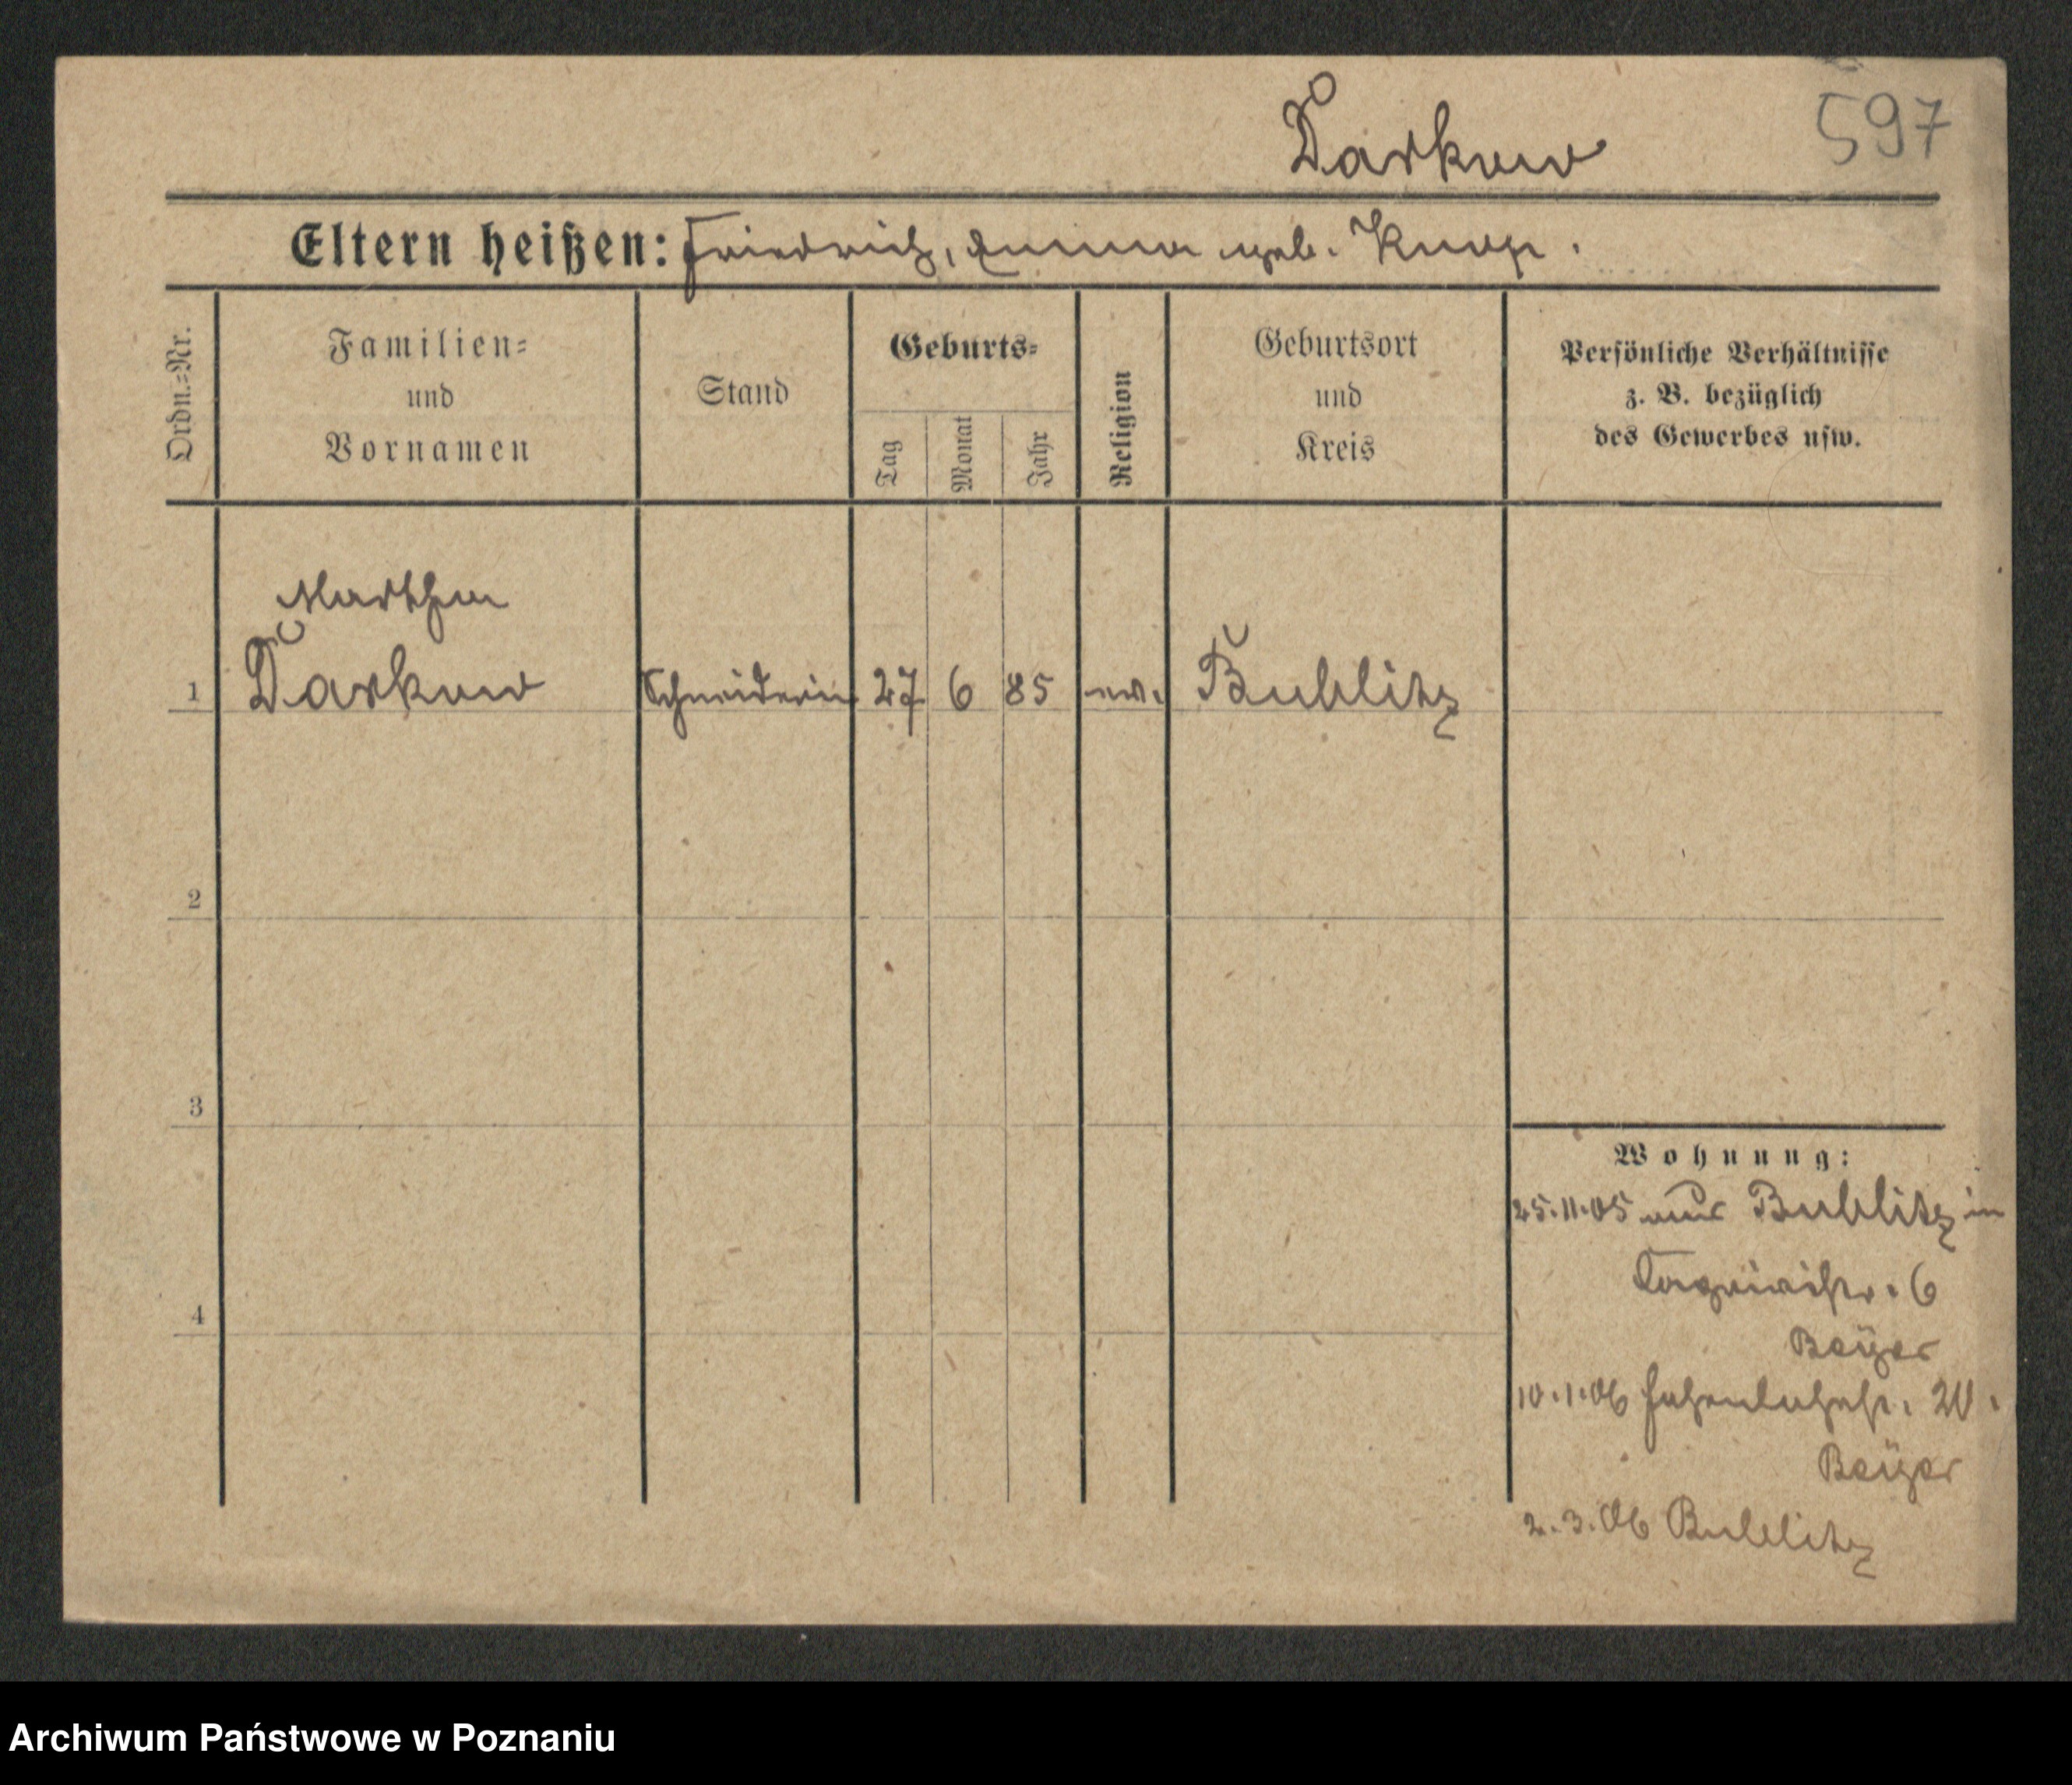 Darkow
597
Eltern heißen: Friedrich, Emma geb. Knop.
Ordn.=Nr.
Familien=
und
Vornamen
Stand
Geburts=
Tag
Monat
Jahr
Religion
Geburtsort
und
Kreis
Persönliche Verhältnisse
z. B. bezüglich
des Gewerbes usw.
Martha
1 Darkow Schneiderin 27 6 85 ev. Bublitz
2
3
4
Wohnung:
25.11.05 aus Bublitz in
6
Beÿer
10.1.06 20.
Beÿer
2.3.06 Bublitz
Archiwum Państwowe w Poznaniu